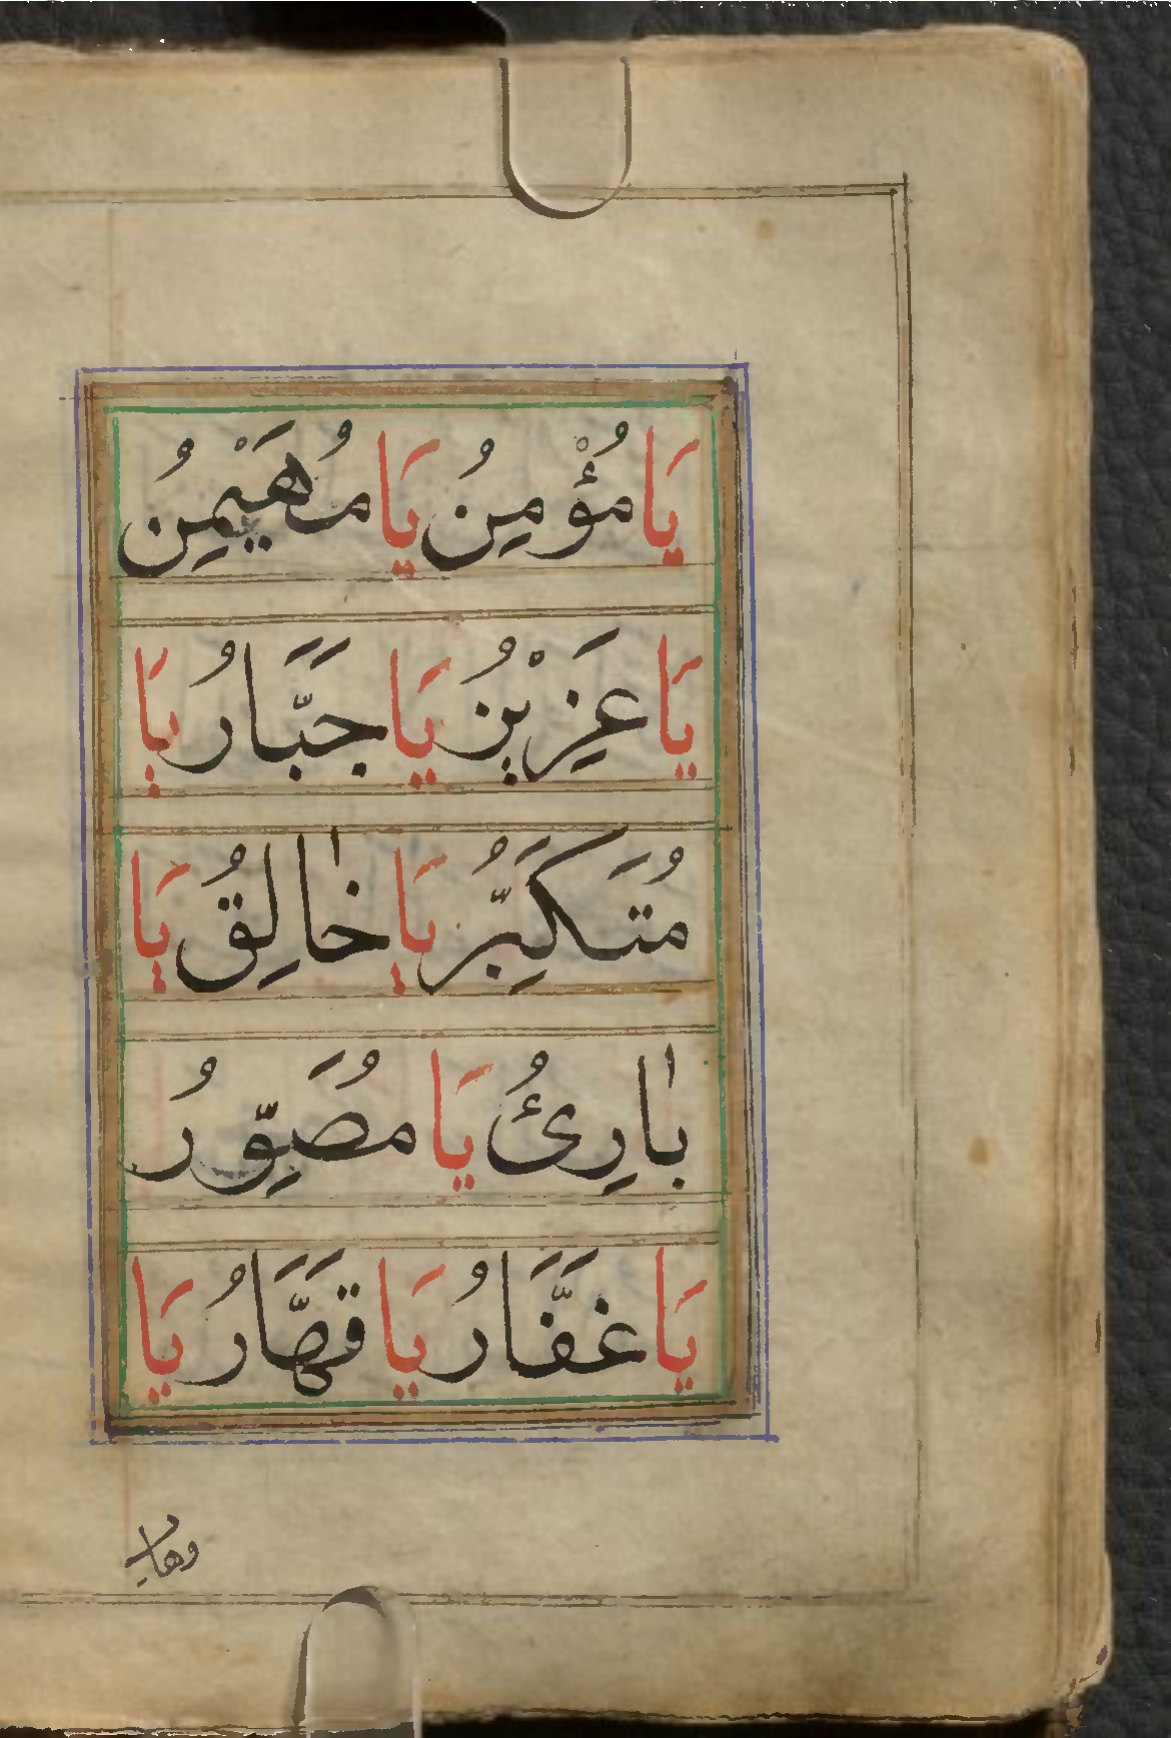 يَا مُؤْمِنُ يَا مُهَيْمِنُ
يَا عَزِيْزُ يَا جَبَّارُ يَا
مُتَكَبِّرُ يَا خٰالِقُ يَا
بٰارِئُ يَا مُصَوِّرُ
يَا غَفَّارُ يَا قَهَّارُ يَا
وهاب